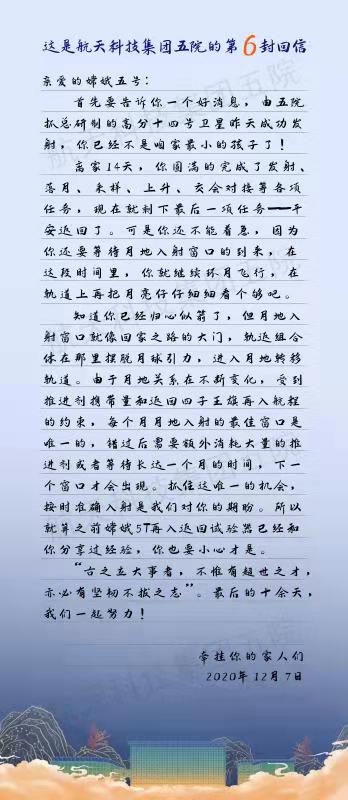 这是航天科技集团五院的第6封回信
亲爱的嫦娥五号：
首先要告诉你一个好消息，由五院
抓总研制的高分十四号卫星昨天成功发
射，你已经不是咱家最小的孩子了！
离家14天，你圆满的完成了发射、
落月、采样、上升、交会对接等各项
任务，现在就剩下最后一项任务——平
安返回了。可是你还不能着急，因为
你还要等待月地入射窗口的到来，在
这段时间里，你就继续环月飞行，在
轨道上再把月亮仔仔细细看个够吧。
知道你已经归心似箭了，但月地入
射窗口就像回家之路的大门，轨返组合
体在那里摆脱月球引力，进入月地转移
轨道。由于月地关系在不断变化，受到
推进剂携带量和返回四子王旗再入航程
的约束，每个月月地入射的最佳窗口是
唯一的，错过后需要额外消耗大量的推
进剂或者等待长达一个月的时间，下一
个窗口才会出现。抓住这唯一的机会，
按时准确入射是我们对你的期盼。所以
就算之前嫦娥5T再入返回试验器已经和
你分享过经验，你也要小心才是。
“古之立大事者，不惟有超世之才，
亦必有坚韧不拔之志”。最后的十余天，
我们一起努力！
牵挂你的家人们
2020年12月7日